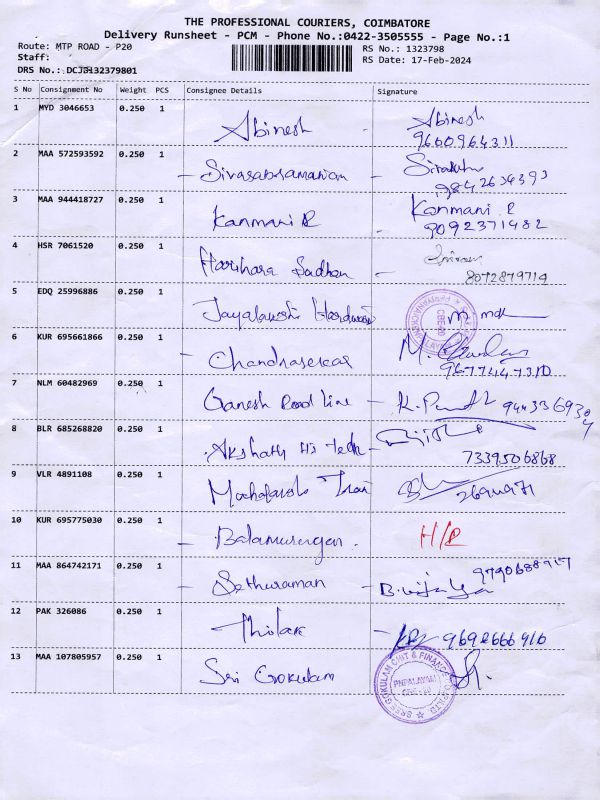 THE PROFESSIONAL COURIERS, COIMBATORE
Delivery Runsheet - PCM - Phone No.:0422-3505555 - Page No.:1
Route: MTP ROAD - P20 RS No.: 1323798
Staff: RS Date: 17-Feb-2024
DRS No.: DCJ3132379801
S No Consignment No Weight PCS Consignee Details Signature
1 MYD 3046653 0.250 1 Abinesh Abinesh
9600964311
2 MAA 572593592 0.250 1 - Sivasabramanian
9842634393
3 MAA 944418727 0.250 1 Kanmani R Kanmani R
9092371482
4 HSR 7061520 0.250 1 Harihara Sadhan -
8072879714
5 EDQ 25996886 0.250 1 Jayalakshi Hardware
6 KUR 695661866 0.250 1 - Chandrasekar
9677447310
7 NLM 60482969 0.250 1 Ganesh Road Line -
8 BLR 685268820 0.250 1 Akshath His tech -
7339506868
9 VLR 4891108 0.250 1
10 KUR 695775030 0.250 1 - Balamurugan.
11 MAA 864742171 0.250 1 - Sethuraman - B.
12 PAK 326086 0.250 1 Thilak - 9692666916
13 MAA 107805957 0.250 1 Sri Gokulam
SREE GOKULAM CHIT & FINANCE CO. P. LTD.
PNPALAYAM
CBE-20